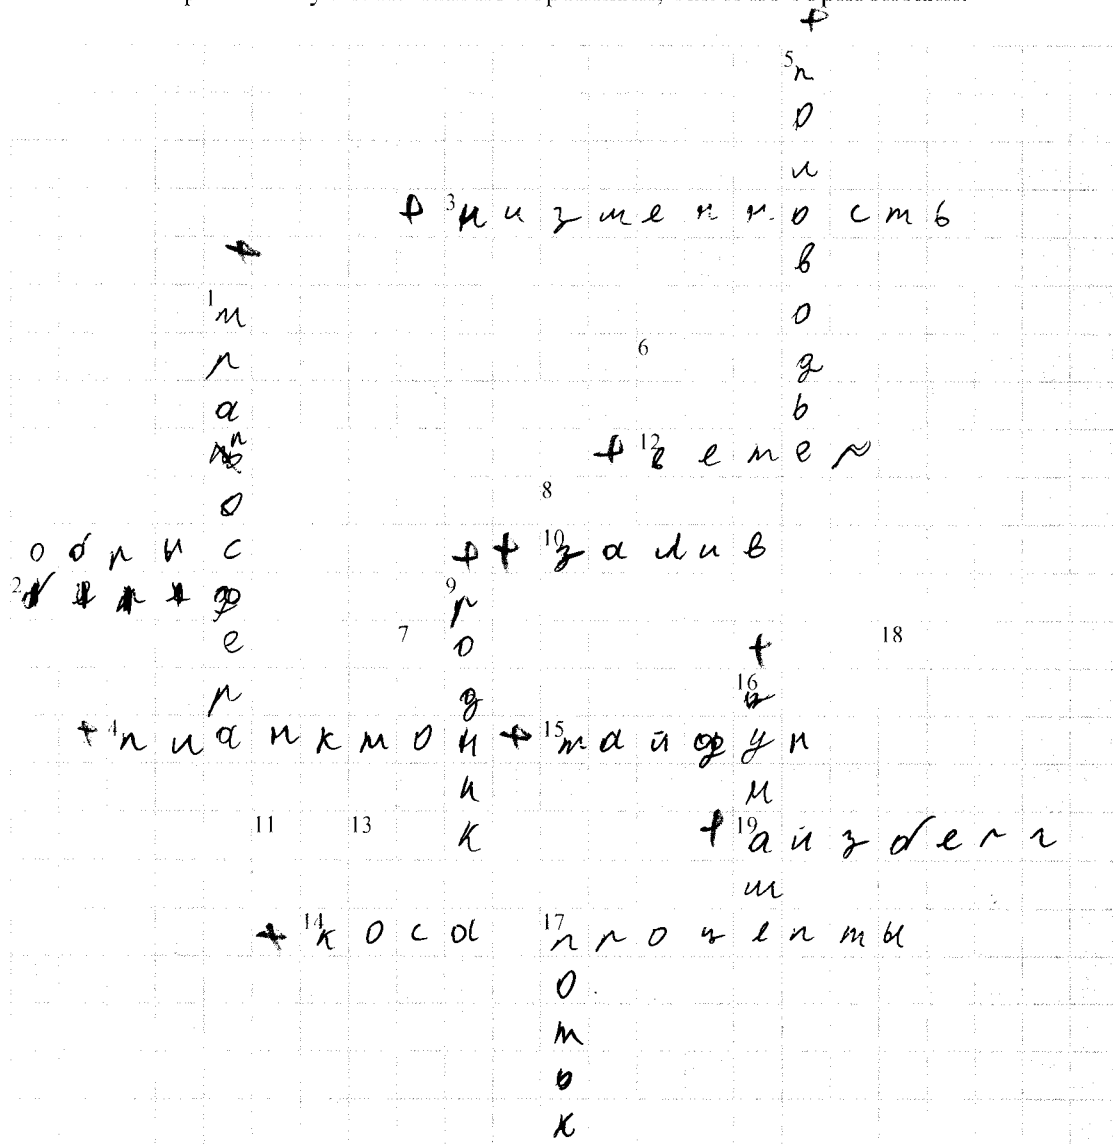 5 половодье
3 низменность
1 трапосфера
6
12 ветер
8
10 залив
2
9 родник
7
18
16
4 планктон
15 тайфун
11
13
19 айзберг
14 коса
17 проценты
поток